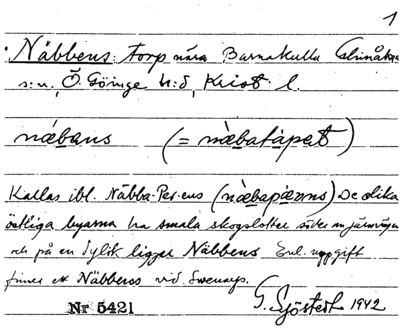 1
Näbbens: torp nära Barnakulla Glimåkra
s:n, Ö. Göinge h:d, Krist. l.
næbans (= næbatåpet)
Kallas ibl. Näbba-Per-ens (næbapærns) De olika
östliga byarna ha smala skogslotter söder om järnvägen
och på en sydlik ligger Näbbens Enl. uppgift
finnes ett Näbbens vid
Nr 5421 G. Sjöstedt 1942